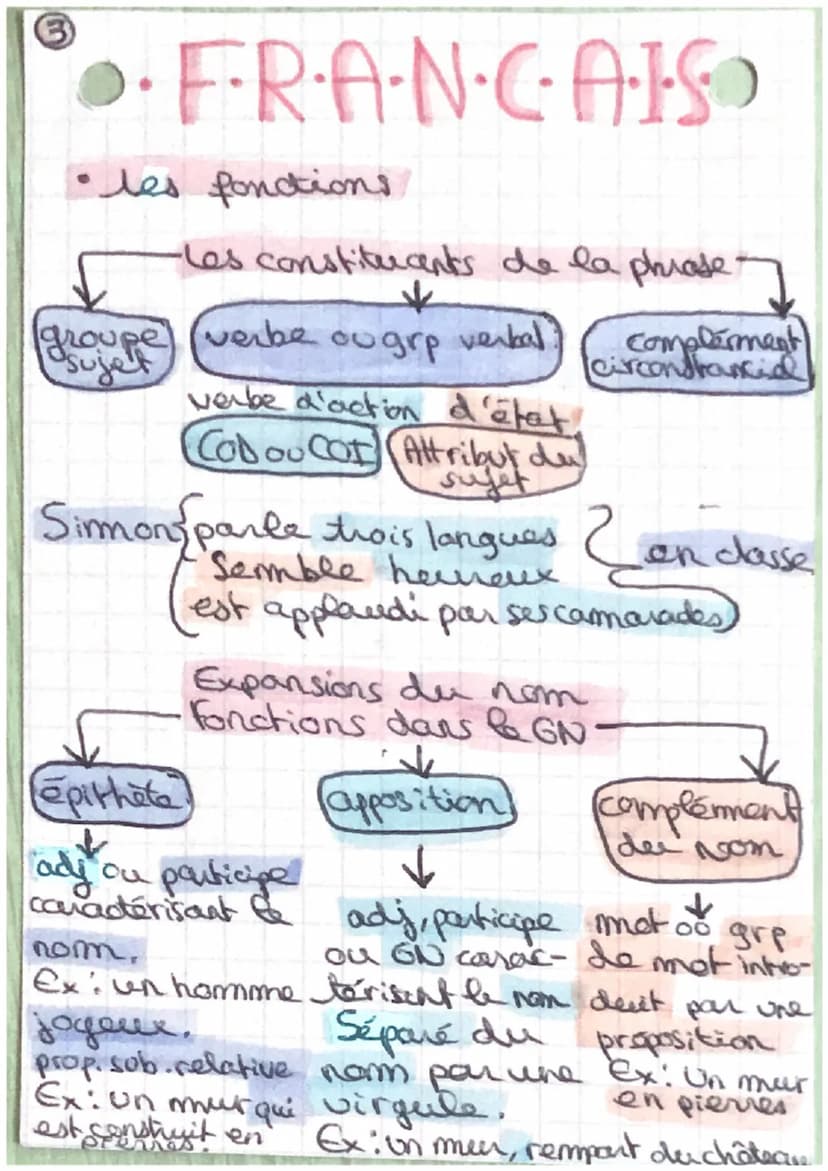 3
F.R.A.N.C.A.I.S
• les fonctions
Les constituants de la phrase
groupe sujet
verbe ou grp verbal
complément circonstanciel
verbe d'action d'état
COD ou COI
Attribut du sujet
Simon parle trois langues
semble heureux
est applaudi par ses camarades
en classe
Expansions du nom
fonctions dans le GN
épithète
apposition
complément
du nom
adj ou participe
caractérisant le
nom.
Ex : un homme
joyeux.
prop. sub. relative
Ex : un mur qui
est construit en
pierres.
adj, participe
ou GN carac-
térisent le nom
Séparé du
nom par une
virgule.
Ex : un mur, rempart du château
mot ou grp
de mot intro-
duit par une
proposition
Ex : Un mur
en pierres